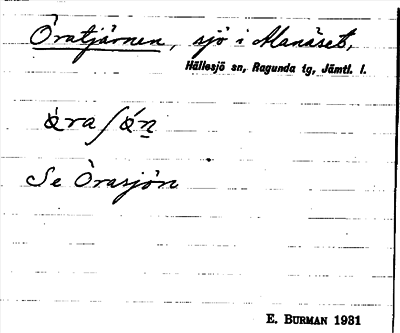 Òratjärnen, sjö i Manäset,
Hällesjö sn, Ragunda tg, Jämtl. l.
Se Òrasjön
E. BURMAN 1931